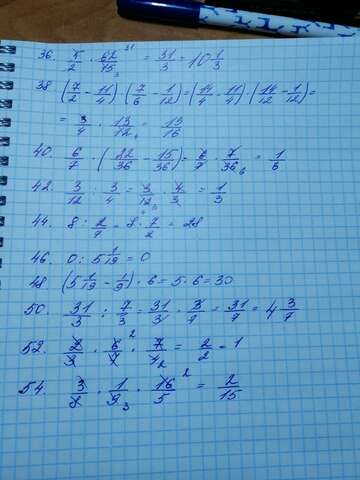 36. 5/2 · 62/15 = 31/3 = 10 1/3
38 (7/2 - 11/4) · (7/6 - 1/12) = (14/4 - 11/4) · (14/12 - 1/12) =
= 3/4 · 13/12 = 13/16
40. 6/7 · (22/36 - 15/36) = 6/7 · 7/36 = 1/6
42. 3/12 : 3/4 = 3/12 · 4/3 = 1/3
44. 8 : 2/7 = 8 · 7/2 = 28
46 0 : 5 1/19 = 0
48. (5 1/19 - 1/19) · 6 = 5 · 6 = 30
50. 31/3 : 7/3 = 31/3 · 3/7 = 31/7 = 4 3/7
52. 2/3 · 6/7 · 7/4 = 2/2 = 1
54. 3/8 · 1/9 · 16/5 = 2/15